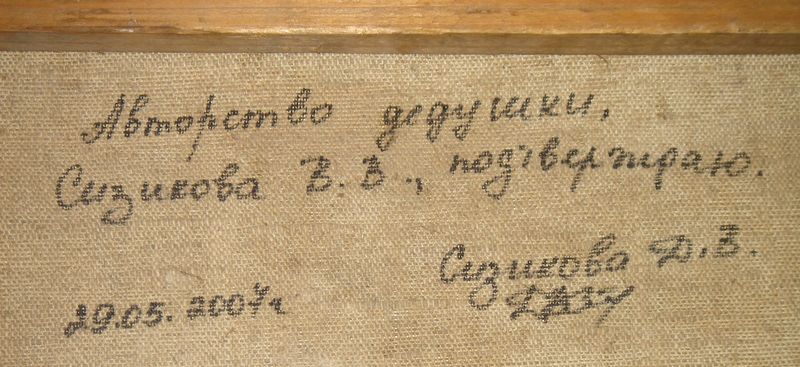 Авторство дедушки,
Сизикова В.В., подтверждаю.
Сизикова Д.В.
29.05.2007г